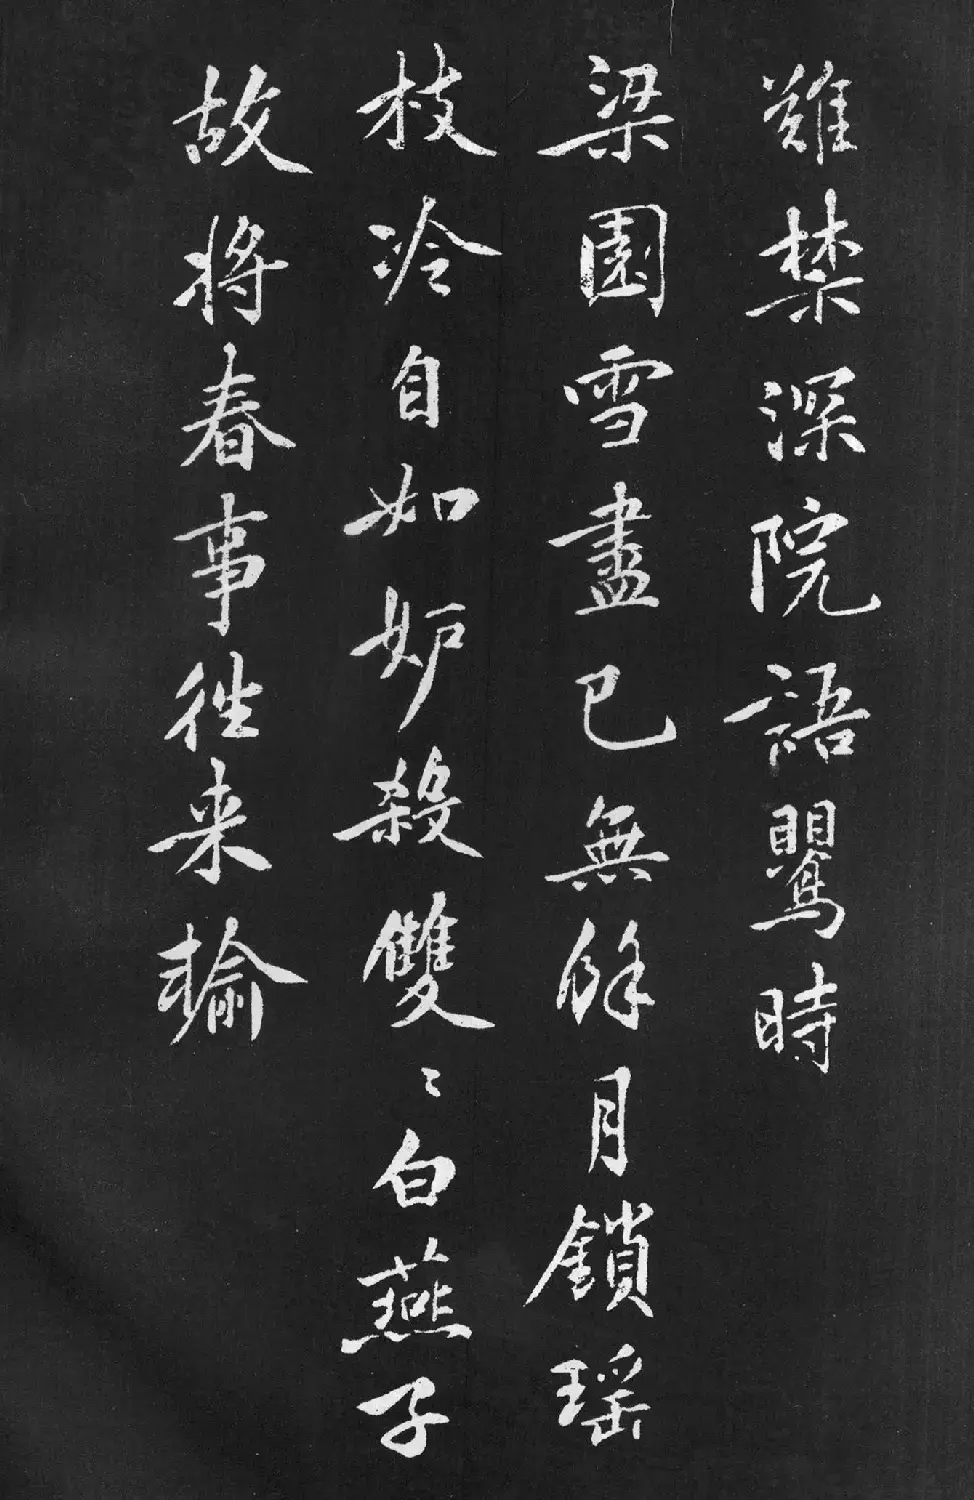 難禁深院語鶯時
梁園雪盡已無餘月鎖瑶
枝冷自如妒殺雙〻白燕子
故將春事往来輸